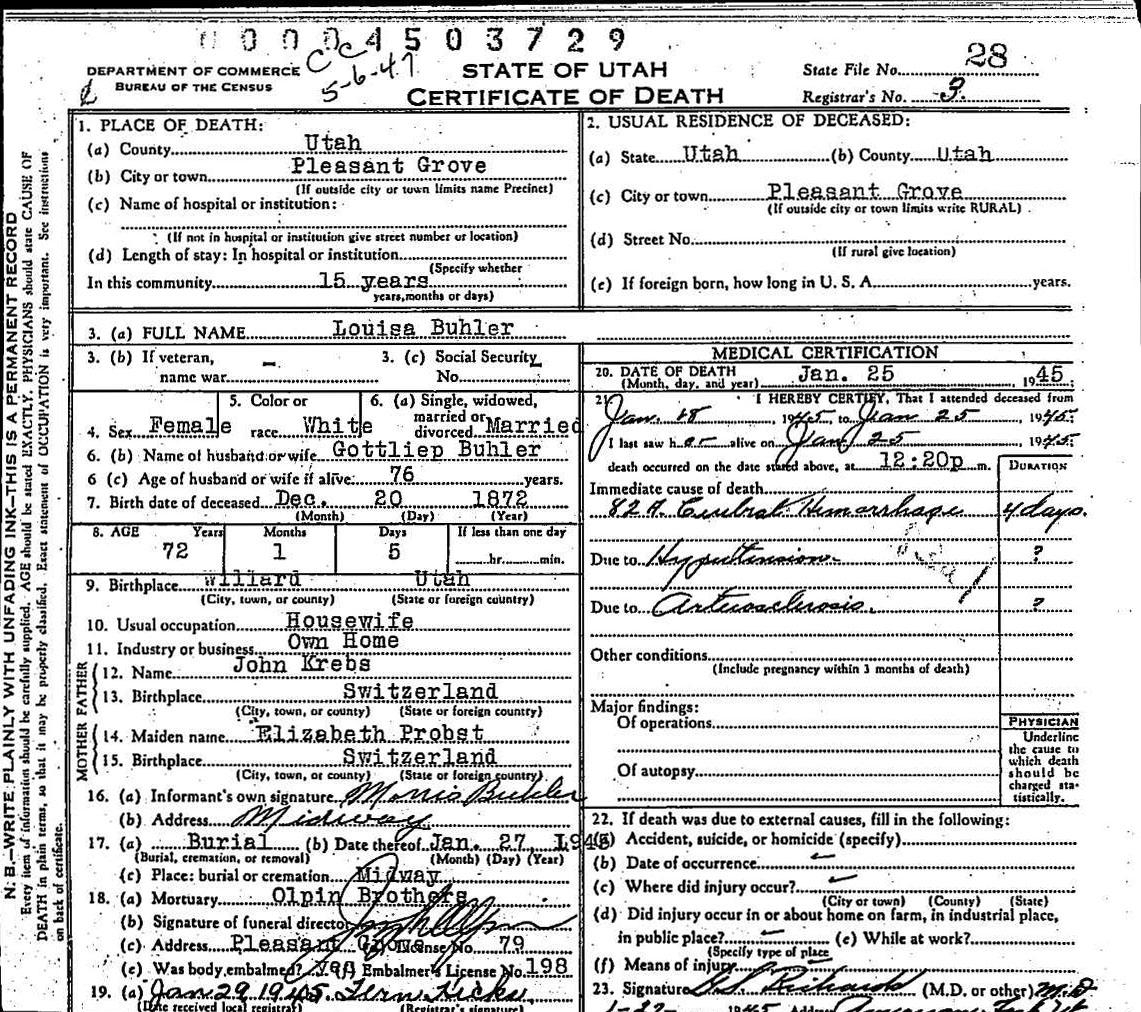 0 0 0 0 4 5 0 3 7 2 9
CC
5-6-47
DEPARTMENT OF COMMERCE
BUREAU OF THE CENSUS
STATE OF UTAH
CERTIFICATE OF DEATH
State File No. 28
Registrar's No. 3.
N. B.—WRITE PLAINLY WITH UNFADING INK—THIS IS A PERMANENT RECORD
Every item of information should be carefully supplied. AGE should be stated EXACTLY. PHYSICIANS should state CAUSE OF
DEATH in plain terms, so that it may be properly classified. Exact statement of OCCUPATION is very important. See instructions
on back of certificate.
1. PLACE OF DEATH:
(a) County Utah
(b) City or town Pleasant Grove
(If outside city or town limits name Precinct)
(c) Name of hospital or institution:
(If not in hospital or institution give street number or location)
(d) Length of stay: In hospital or institution
(Specify whether
In this community 15 years
years, months or days)
2. USUAL RESIDENCE OF DECEASED:
(a) State Utah (b) County Utah
(c) City or town Pleasant Grove
(If outside city or town limits write RURAL)
(d) Street No.
(If rural give location)
(e) If foreign born, how long in U. S. A. years.
3. (a) FULL NAME Louisa Buhler
3. (b) If veteran, name war –
3. (c) Social Security No. –
4. Sex Female
5. Color or race White
6. (a) Single, widowed, married or divorced Married
6. (b) Name of husband or wife Gottliep Buhler
6 (c) Age of husband or wife if alive: 76 years.
7. Birth date of deceased Dec. 20 1872
(Month) (Day) (Year)
8. AGE Years Months Days If less than one day
72 1 5 hr. min.
9. Birthplace Willard Utah
(City, town, or county) (State or foreign country)
10. Usual occupation Housewife
11. Industry or business Own Home
FATHER
12. Name John Krebs
13. Birthplace Switzerland
(City, town, or county) (State or foreign country)
MOTHER
14. Maiden name Elizabeth Probst
15. Birthplace Switzerland
(City, town, or county) (State or foreign country)
16. (a) Informant's own signature Morris Buhler
(b) Address Midway
17. (a) Burial (b) Date thereof Jan. 27 1945
(Burial, cremation, or removal) (Month) (Day) (Year)
(c) Place: burial or cremation Midway
18. (a) Mortuary Olpin Brothers
(b) Signature of funeral director
(c) Address Pleasant Grove License No. 79
(e) Was body embalmed? yes (f) Embalmer's License No. 198
19. (a) Jan 29 1945 Fern Hicks
(Date received local registrar) (Registrar's signature)
MEDICAL CERTIFICATION
20. DATE OF DEATH Jan. 25 1945
(Month, day, and year)
21. I HEREBY CERTIFY, That I attended deceased from
Jan 18, 1945, to Jan 25, 1945.
I last saw her alive on Jan 25, 1945.
death occurred on the date stated above, at 12:20p m.
DURATION
Immediate cause of death
82 A. Cerebral Hemorrhage 4 days.
Due to Hypertension ?
Due to Arteriosclerosis. ?
Other conditions
(Include pregnancy within 3 months of death)
Major findings:
Of operations
Of autopsy
PHYSICIAN
Underline
the cause to
which death
should be
charged sta-
tistically.
22. If death was due to external causes, fill in the following:
(a) Accident, suicide, or homicide (specify)
(b) Date of occurrence
(c) Where did injury occur?
(City or town) (County) (State)
(d) Did injury occur in or about home on farm, in industrial place,
in public place? (e) While at work?
(Specify type of place
(f) Means of injury
23. Signature Richards (M.D. or other) M.D.
1945 Address American Fork Ut